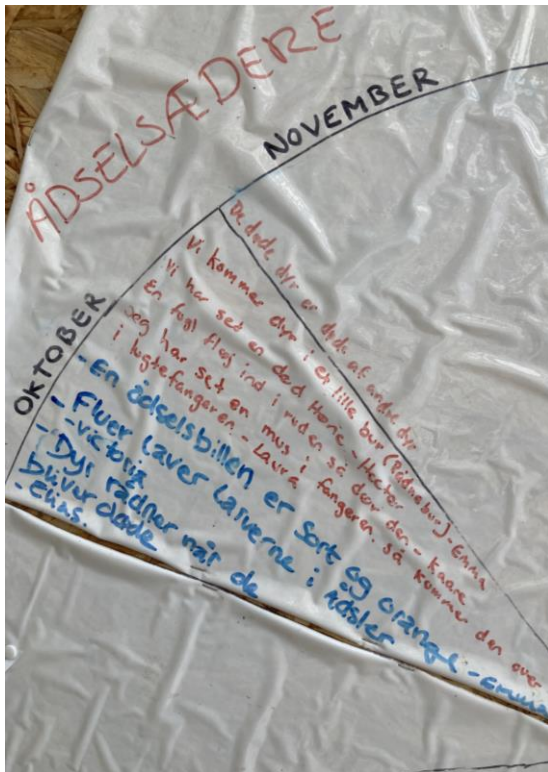 ÅDSELSÆDERE
NOVEMBER
OKTOBER
De døde dyr er døde af andre dyr
Vi kommer dyr i et lille bur (Rådnebur) - Emma
Vi har set en død Høne - Hector
En fugl fløj ind i ruden så døer den - Kaare
Jeg har set en mus i fangeren så kommer den over
i lugtefangeren - Laura
- En ådselsbillen er sort og orange - Emma
- Fluer laver larverne i ådsler
- Victoria
- Dyr rådner når de
bliver døde
- Elias.